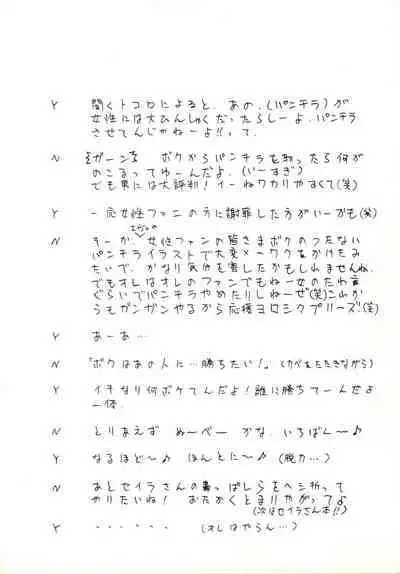 Y 聞くトコロによると、あの、(パンチラ)が
女性には大ひんしゅくだったらしーよ、パンチラ
させてんじゃねーよ!!って。
N ミガーンミ ボクからパンチラを取ったら何が
のこるってゆーんだよ。(いーすぎ)
でも男には大評判!イーねワカリやすくて(笑)
Y 一応女性ファンの方に謝罪した方がいーかも(笑)
N そーか、女性ファンの皆さまボクのつたない
パンチライラストで大変メーワクをかけたみ
たいで、かなり気分を害したかもしれませんね、
でもオレはオレのファンでもねー女のたわ言
ぐらいでパンチラやめたりしねーぜ(笑)これか
らもガンガンやるから応援ヨロシクプリーズ!(笑)
Y あーあ…
N 「ボクはあの人に…勝ちたい!」(カベをたたきながら)
Y イキなり何ボケてんだよ!誰に勝ちてーんだよ
一体。
N とりあえず ぬーべー かな、いちばんー〜♪
Y なるほど〜♪ ほんとに〜♪ (脱力…)
N あとセイラさんの鼻っぱしらをヘシ折って
やりたいね! おたかくとまりやがってよ
(次はセイラさん本!!)
Y ・・・・・・ (オレはやらん…)